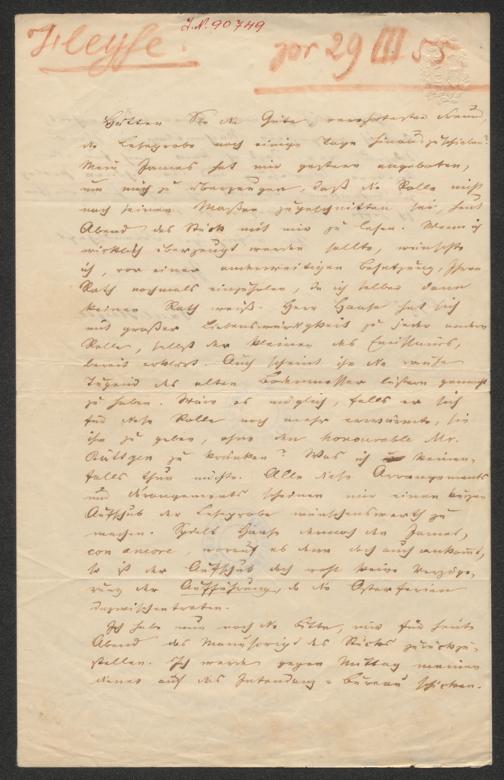 J.N. 90749
Heyse.
pr 29 III 55
Hätten Sie die Güte, verehrtester Freund,
die Leseprobe noch einige Tage hinauszuschieben?
Mein James hat mir gestern angeboten,
um mich zu überzeugen, daß die Rolle nicht
nach seinen Maßen zugeschnitten sei, heut
Abend das Stück mit mir zu lesen. Wenn ich
wirklich überzeugt werden sollte, wünschte
ich, vor einer anderweitigen Besetzung, Ihren
Rath nochmals einzuholen, da ich selber dann
keinen Rath weiß. Herr Haase hat sich
mit großer Liebenswürdigkeit zu jeder andern
Rolle, selbst der kleinen des Emissairs,
bereit erklärt. Auch scheint ihn die
Tugend des alten Bodenmesser lüstern gemacht
zu haben. Wäre es möglich, falls er sich
für diese Rolle noch mehr erwärmte, sie
ihm zu geben, ohne den honourable Mr.
Büttgen zu kränken? Was ich keinen-
falls thun möchte. Alle diese Arrangements
und dérangements scheinen mir einen kurzen
Aufschub der Leseprobe wünschenswerth zu
machen. Spielt Haase dennoch den James,
con amore, worauf es denn doch auch ankommt,
so ist der Aufschub doch wohl keine Verzöge-
rung der Aufführung, da die Osterferien
dazwischentreten.
Ich habe nun noch die Bitte, mir für heute
Abend das Manuscript des Stücks zurückzu-
stellen. Ich werde gegen Mittag meinen
diener auf das Intendanz-Büreau schicken.